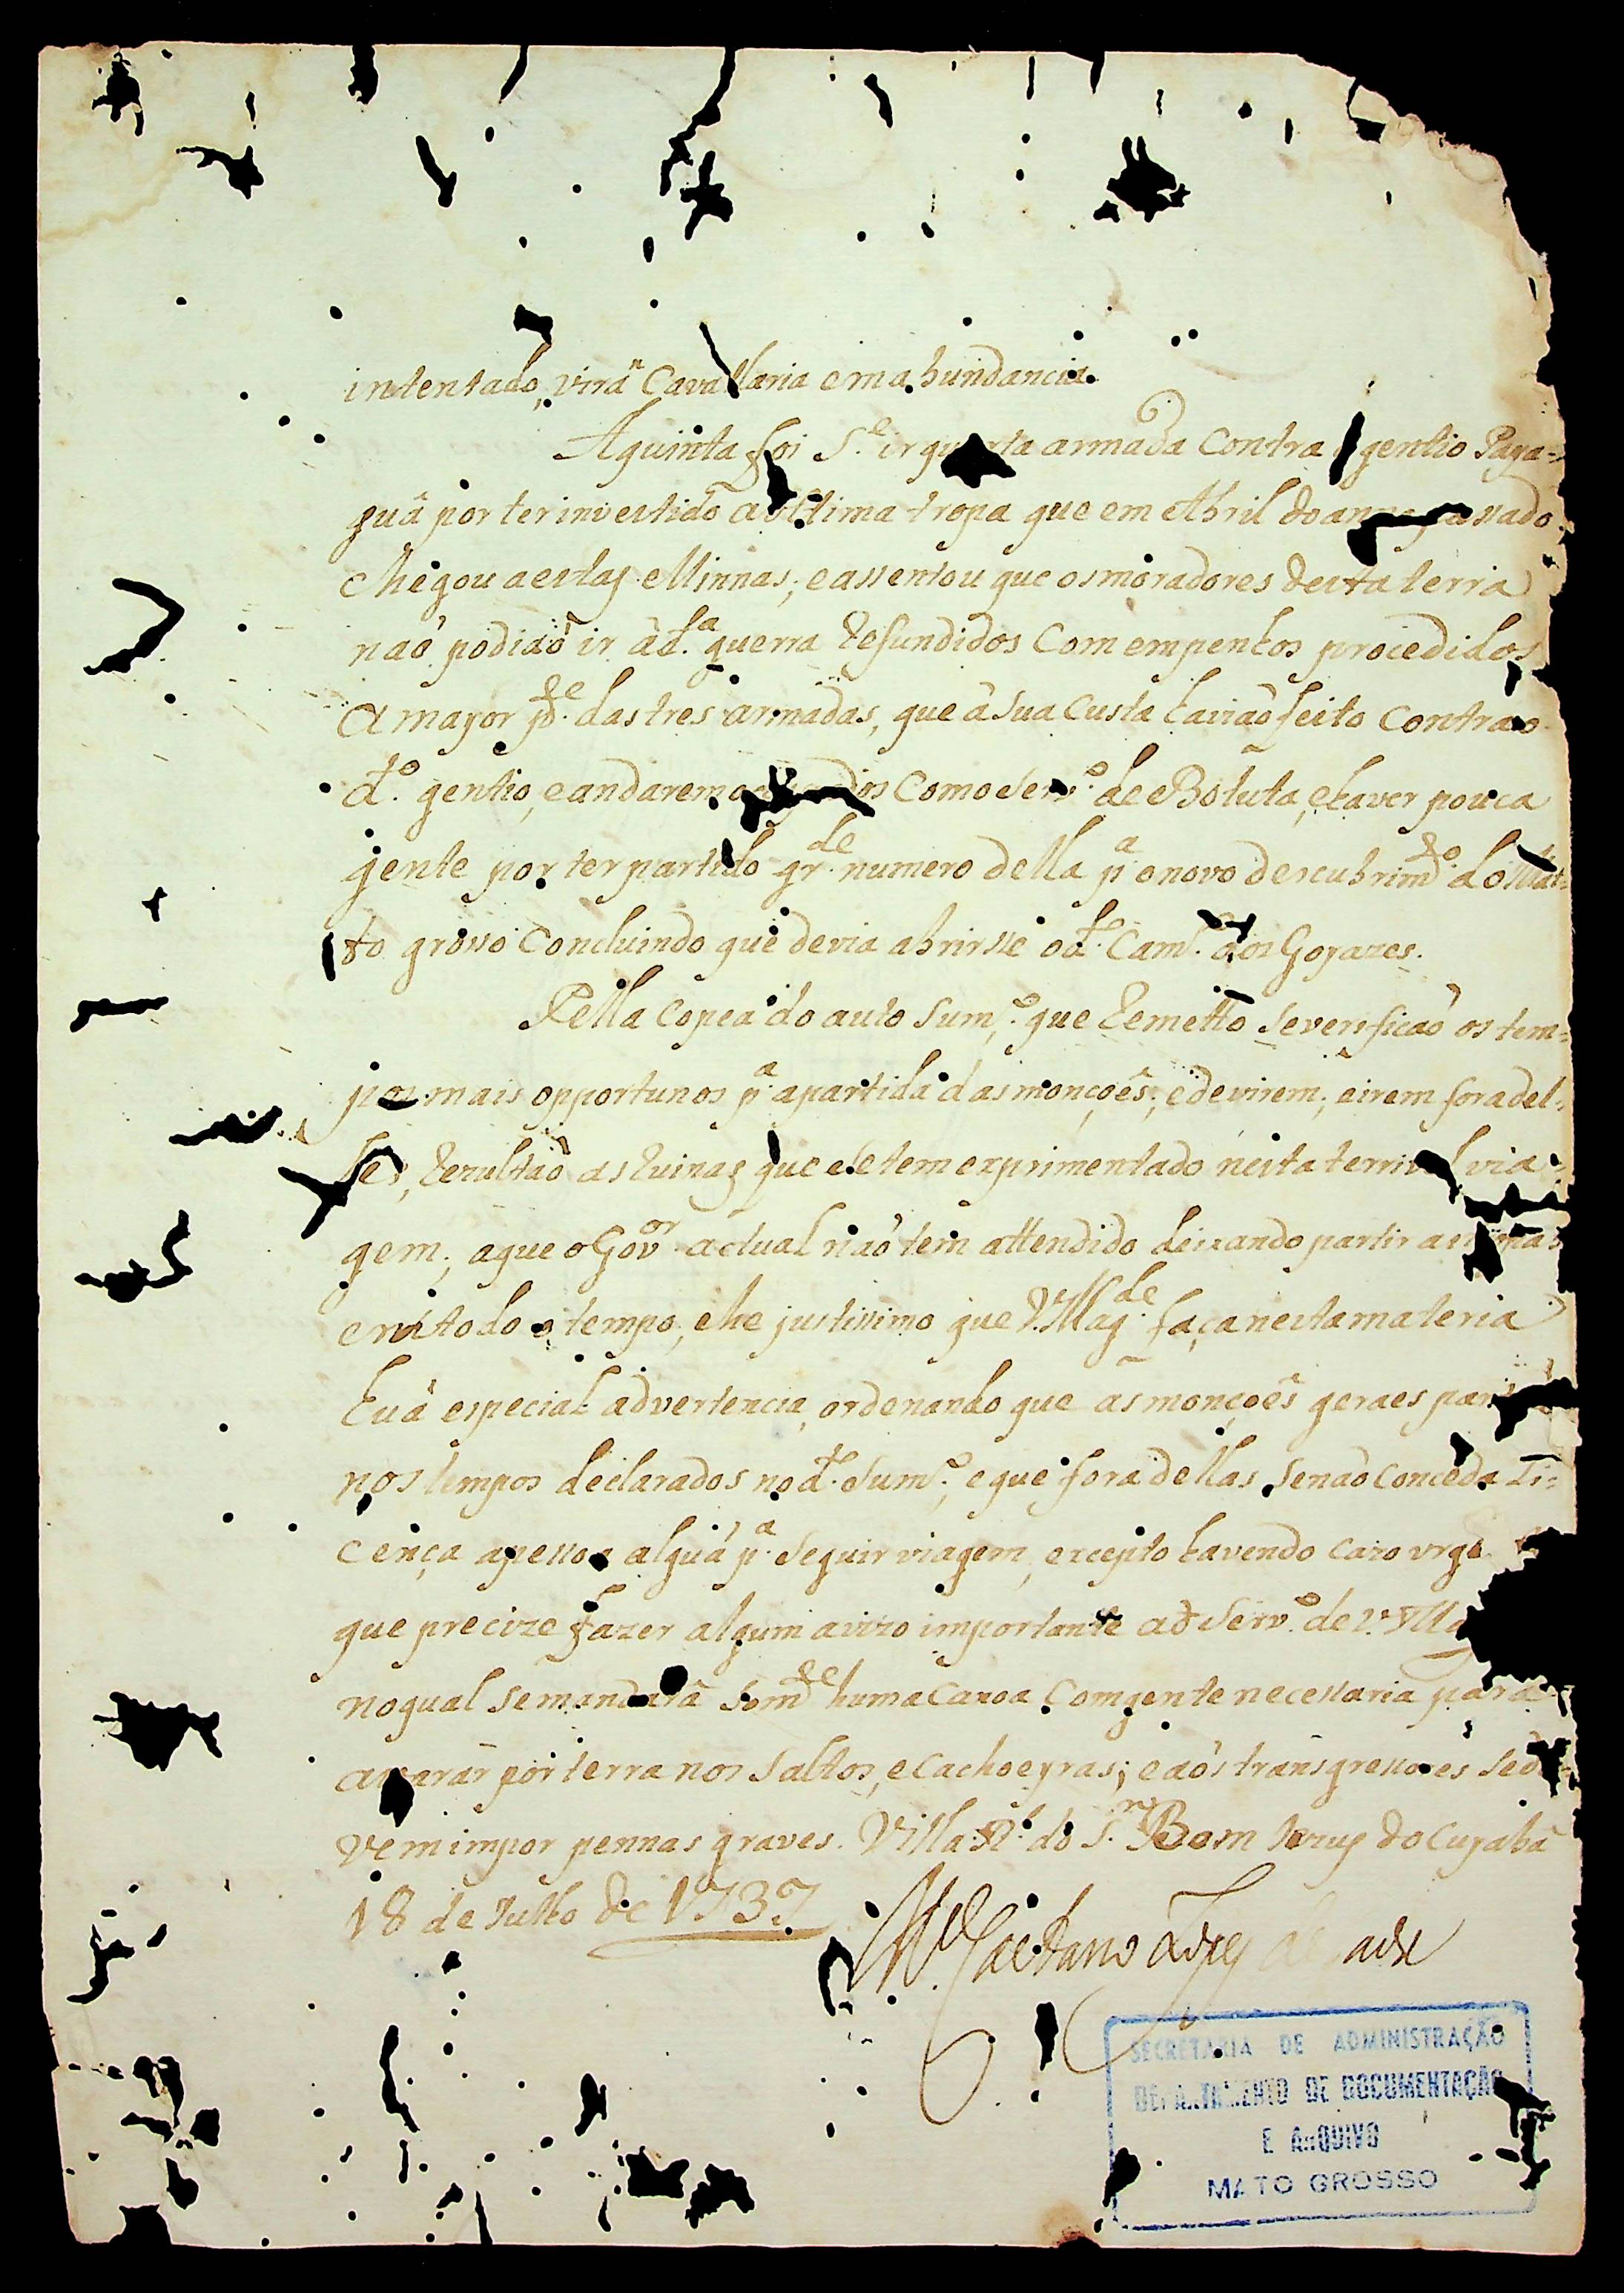 intentado, virâ Cavallaria em abundancia.
Aquinta foi S.e ir quarta armada Contra o gentio Paya=
guâ por ter investido a ultima tropa que em Abril do anno passado
chegou a estas Minnas; e assentou que os moradores desta terra
naó podiaó ir â d.ta guerra refundidos Com empenhos procedidos
a mayor p.te das tres armadas, que â sua Custa haviaó feito Contra o
d.to gentio, e andarem Como Serv.o de Botuta, e haver pouca
gente por ter partido gr.de numero della p.a o novo descubrim.to do Mat=
to grosso Concluindo que devia abrirsse o d.to Cam.o dos Goyazes.
Pella Copea do auto Sum.o que Remetto Se verificaó os tem=
pos mais opportunos p.a a partida das monçoês; e de virem, e irem fora del=
les, Rezultaó as Ruinas que se tem exprimentado nesta terrivel via=
gem; a que o Gov.or actual naó tem attendido deixando partir as
em todo o tempo, e he justissimo que V. Mag.de faça nesta materia
huâ especial advertencia, ordenando que as monçoês geraes
nos tempos declarados no d.to Sum.o, e que fora dellas Se naó Conceda Li=
cença a pessoa alguá p.a Seguir viagem, excepto havendo cazo
que precize fazer algum avizo importante ao Serv.o de V. Mag
no qual Se mandarâ Som.te huma Canoa Com gente necessaria para
a varar por terra nos Saltos, e Cachoeyras; e aós transgressores Se de=
vem impor pennas graves. Villa R.l do S.r Bom Jezus do Cuyabâ
18 de Julho de 1737
M.el Caetano Lopes de
SECRETARIA DE ADMINISTRAÇÃO
DEPARTAMENTO DE DOCUMENTAÇÃO
E ARQUIVO
MATO GROSSO